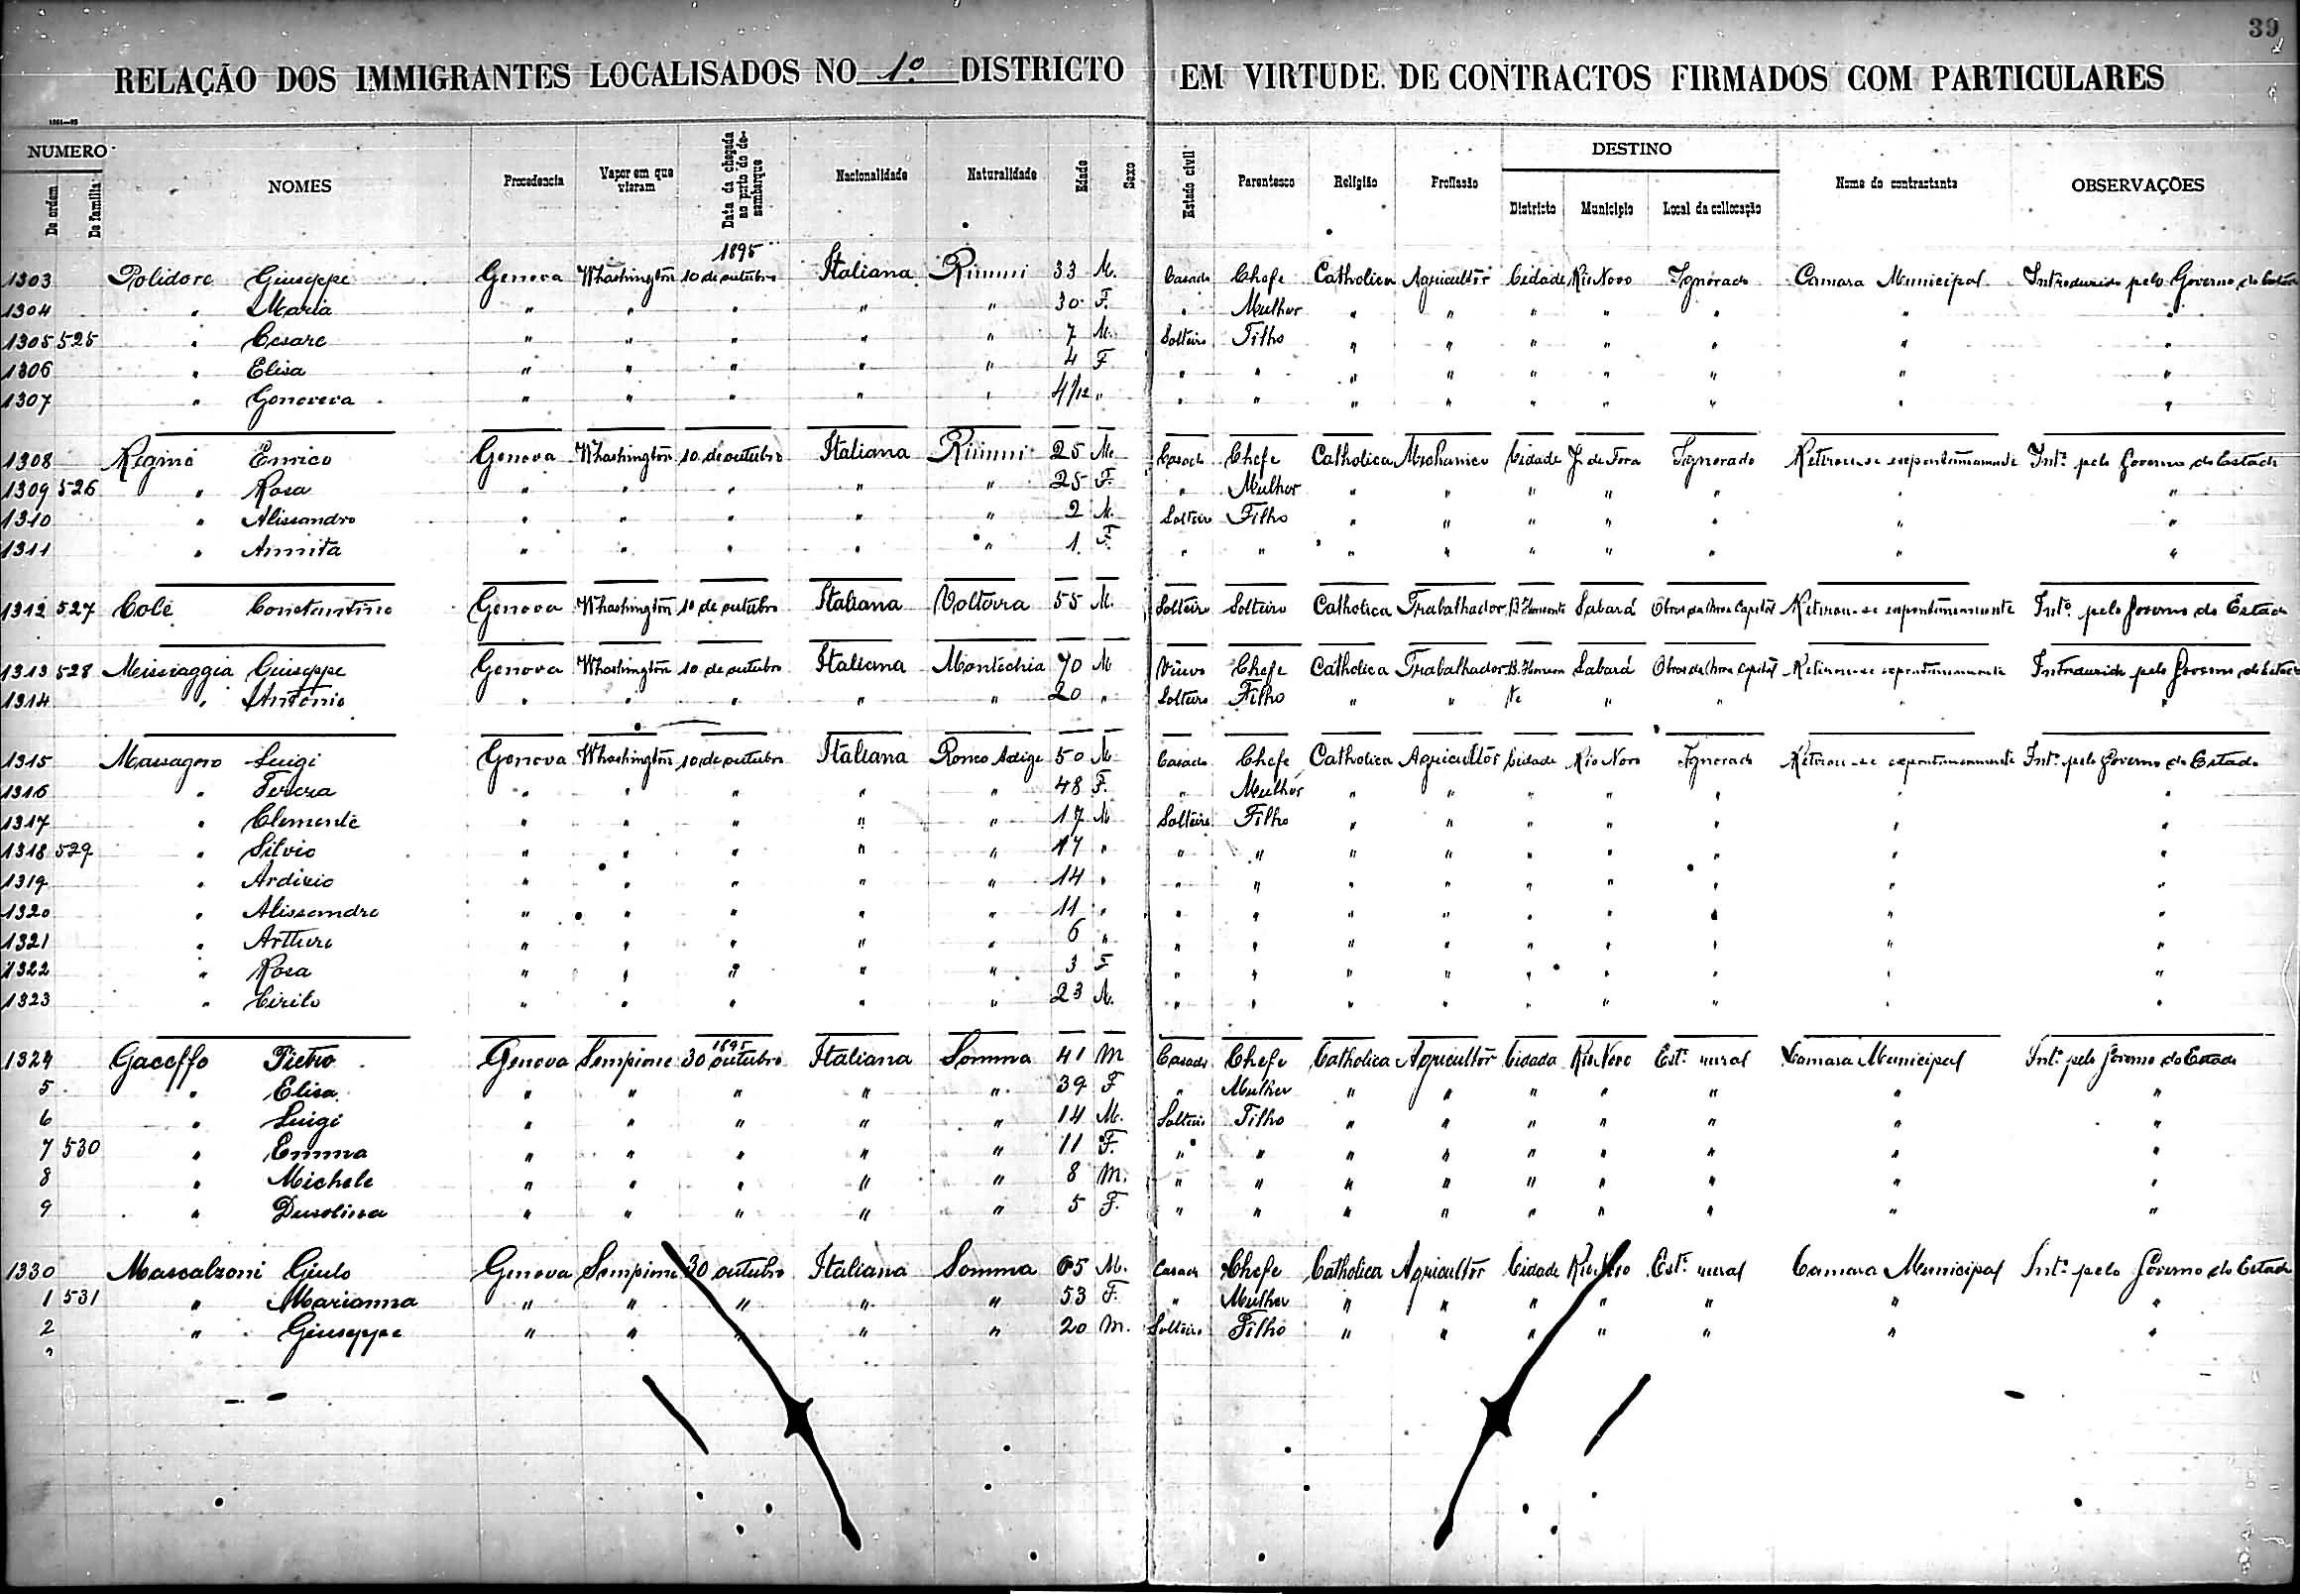 39
RELAÇÃO DOS IMMIGRANTES LOCALISADOS NO 1º DISTRICTO EM VIRTUDE DE CONTRACTOS FIRMADOS COM PARTICULARES
NUMERO De ordem De familia NOMES Procedencia Vapor em que vieram Data da chegada ao porto do desembarque Nacionalidade Naturalidade Edade Sexo Estado civil Parentesco Religião Profissão DESTINO Districto Municipio Local da collocação Nome do contractante OBSERVAÇÕES
1895
1303 Polidore Giuseppe Genova Whashington 10 de outubro Italiana Rimini 33 M. Casado Chefe Catholica Agricultor Cidade Rio Novo Ignorado Camara Municipal Introduzido pelo Governo do Estado
1304 " Maria " " " " " 30 F. " Mulher " " " " " " "
1305 525 " Cesare " " " " " 7 M. Solteiro Filho " " " " " " "
1306 " Elisa " " " " " 4 F " " " " " " " " "
1307 " Genoveva " " " " " 4/12 " " " " " " " " " "
1308 Regini Enrico Genova Whashington 10 de outubro Italiana Rimini 25 M. Casado Chefe Catholica Mechanico Cidade J. de Fora Ignorado Retirou-se espontaneamente Intº pelo Governo do Estado
1309 526 " Rosa " " " " " 25 F. " Mulher " " " " " " "
1310 " Alissandro " " " " " 2 M. Solteiro Filho " " " " " " "
1311 " Annita " " " " " 1 F. " " " " " " " " "
1312 527 Cole Constantino Genova Whashington 10 de outubro Italiana Voltarra 55 M. Solteiro Solteiro Catholica Trabalhador B. Horizonte Sabará Obras da Nova Capital Retirou-se espontaneamente Intº pelo Governo do Estado
1313 528 Meissaggia Giuseppe Genova Whashington 10 de outubro Italiana Montechia 70 M Viuvo Chefe Catholica Trabalhador B. Horizon Sabará Obras da Nova Capital Retirou-se espontaneamente Introduzido pelo Governo do Estado
1314 " Antonio " " " " " 20 " Solteiro Filho " " te " " " "
1315 Massagno Luigi Genova Whashington 10 de outubro Italiana Ronco Adige 50 M Casado Chefe Catholica Agricultor Cidade Rio Novo Ignorado Retirou-se espontaneamente Intº pelo Governo do Estado
1316 " Tereza " " " " " 48 F. " Mulher " " " " " " "
1317 " Clemente " " " " " 17 M Solteiro Filho " " " " " " "
1318 529 " Silvio " " " " " 17 " " " " " " " " " "
1319 " Ardizio " " " " " 14 " " " " " " " " " "
1320 " Alissandro " " " " " 11 " " " " " " " " " "
1321 " Arthuro " " " " " 6 " " " " " " " " " "
1322 " Rosa " " " " " 3 F " " " " " " " " "
1323 " Cirilo " " " " " 23 M. " " " " " " " " "
1895
1324 Gaceffo Pietro Genova Sempione 30 outubro Italiana Somma 41 M Casado Chefe Catholica Agricultor Cidada Rio Novo Est. rural Camara Municipal Intº pelo Governo do Estado
5 " Elisa " " " " " 39 F " Mulher " " " " " " "
6 " Luigi " " " " " 14 M. Solteiro Filho " " " " " " "
7 530 " Emma " " " " " 11 F. " " " " " " " " "
8 " Michele " " " " " 8 M. " " " " " " " " "
9 " Dusolina " " " " " 5 F. " " " " " " " " "
1330 Mascalzoni Giulo Genova Sempione 30 outubro Italiana Somma 65 M. Casado Chefe Catholica Agricultor Cidade Rio Novo Est. rural Camara Municipal Intº pelo Governo do Estado
1 531 " Marianna " " " " " 53 F. " Mulher " " " " " " "
2 " Giuseppe " " " " " 20 M. Solteiro Filho " " " " " " "
"